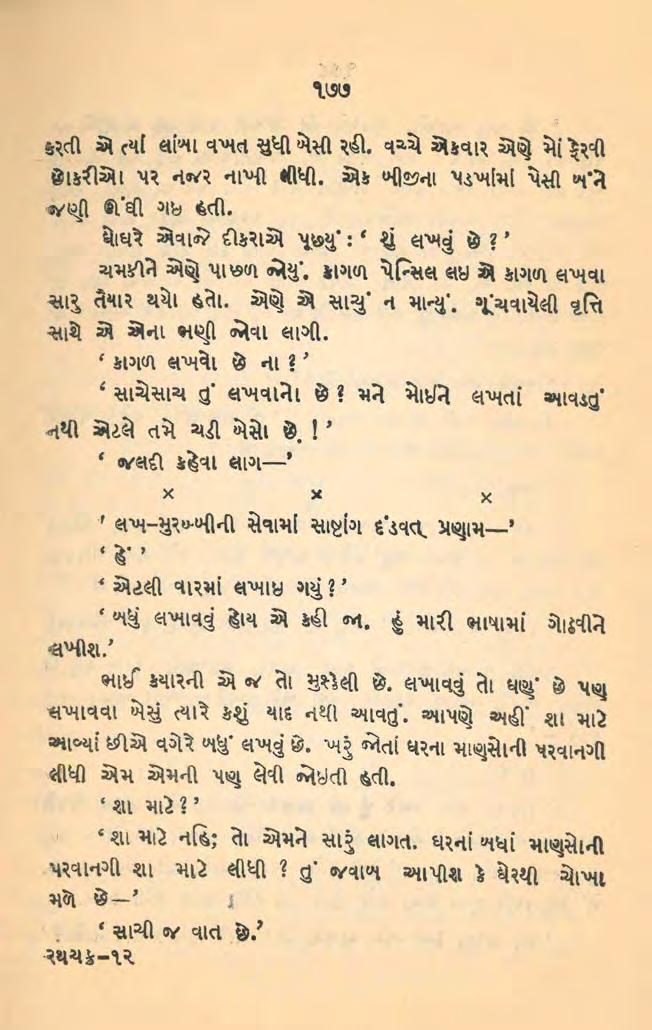 ૧૭૭
કરતી એ ત્યાં લાંબા વખત સુધી બેસી રહી. વચ્ચે એકવાર એણે મોં ફેરવી
છોકરીઓ પર નજર નાખી લીધી. એક બીજીના પડખાંમાં પેસી બંને
જણી ઊંઘી ગઇ હતી.
ઘોઘરે એવાજે દીકરાએ પૂછ્યું : ‘ શું લખવું છે ? ’
ચમકીને એણે પાછળ જોયું. કાગળ પેન્સિલ લઇ એ કાગળ લખવા
સારુ તૈયાર થયો હતો. એણે એ સાચું ન માન્યું. ગૂંચવાયેલી વૃત્તિ
સાથે એ એના ભણી જોવા લાગી.
‘ કાગળ લખવો છે ના ? ’
‘ સાચેસાચ તું લખવાનો છે ? મને મોઈને લખતાં આવડતું
નથી એટલે તમે ચડી બેસો છો ! ’
‘ જલદી કહેવા લાગ—’
× × ×
' લખ–મુરબ્બીની સેવામાં સાષ્ટાંગ દંડવત્ પ્રણામ—’
‘ હં ’
‘ એટલી વારમાં લખાઇ ગયું ? ’
‘ બધું લખાવવું હોય એ કહી જા. હું મારી ભાષામાં ગોઠવીને
લખીશ.’
ભાઈ કયારની એ જ તો મુશ્કેલી છે. લખાવવું તો ઘણું છે પણ
લખાવવા બેસું ત્યારે કશું યાદ નથી આવતું. આપણે અહીં શા માટે
આવ્યાં છીએ વગેરે બધું લખવું છે. ખરૂં જોતાં ઘરના માણસોની પરવાનગી
લીધી એમ એમની પણ લેવી જોઇતી હતી.
‘ શા માટે ? ’
‘ શા માટે નહિ; તો એમને સારું લાગત. ઘરનાં બધાં માણસોની
પરવાનગી શા માટે લીધી ? તું જવાબ આપીશ કે ઘેરથી ચોખા
મળે છે—’
‘ સાચી જ વાત છે.’
રથચક્ર–૧૨